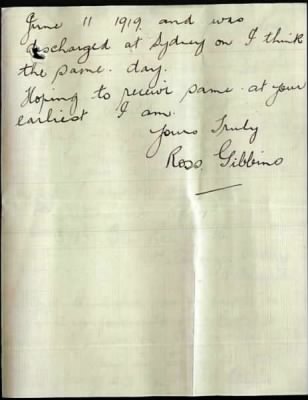 June 11 1919. and was
discharged at Sydney on I think
the same. day.
Hoping to receive same. at your
earliest I am.
Yours Truly
Ross. Gibbins